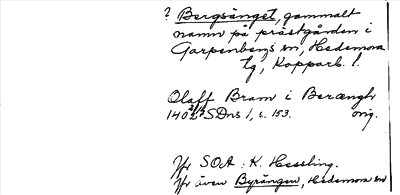 ? Bergsänget, gammalt
namn på prästgården i
Garpenbergs sn, Hedemora
tg, Kopparb. l.
Olaff Bram i Berængh
1402 SDns 1, s. 153. orig.
Jfr SOA: K. Hessling.
Jfr även Byrängen, Hedemora sn